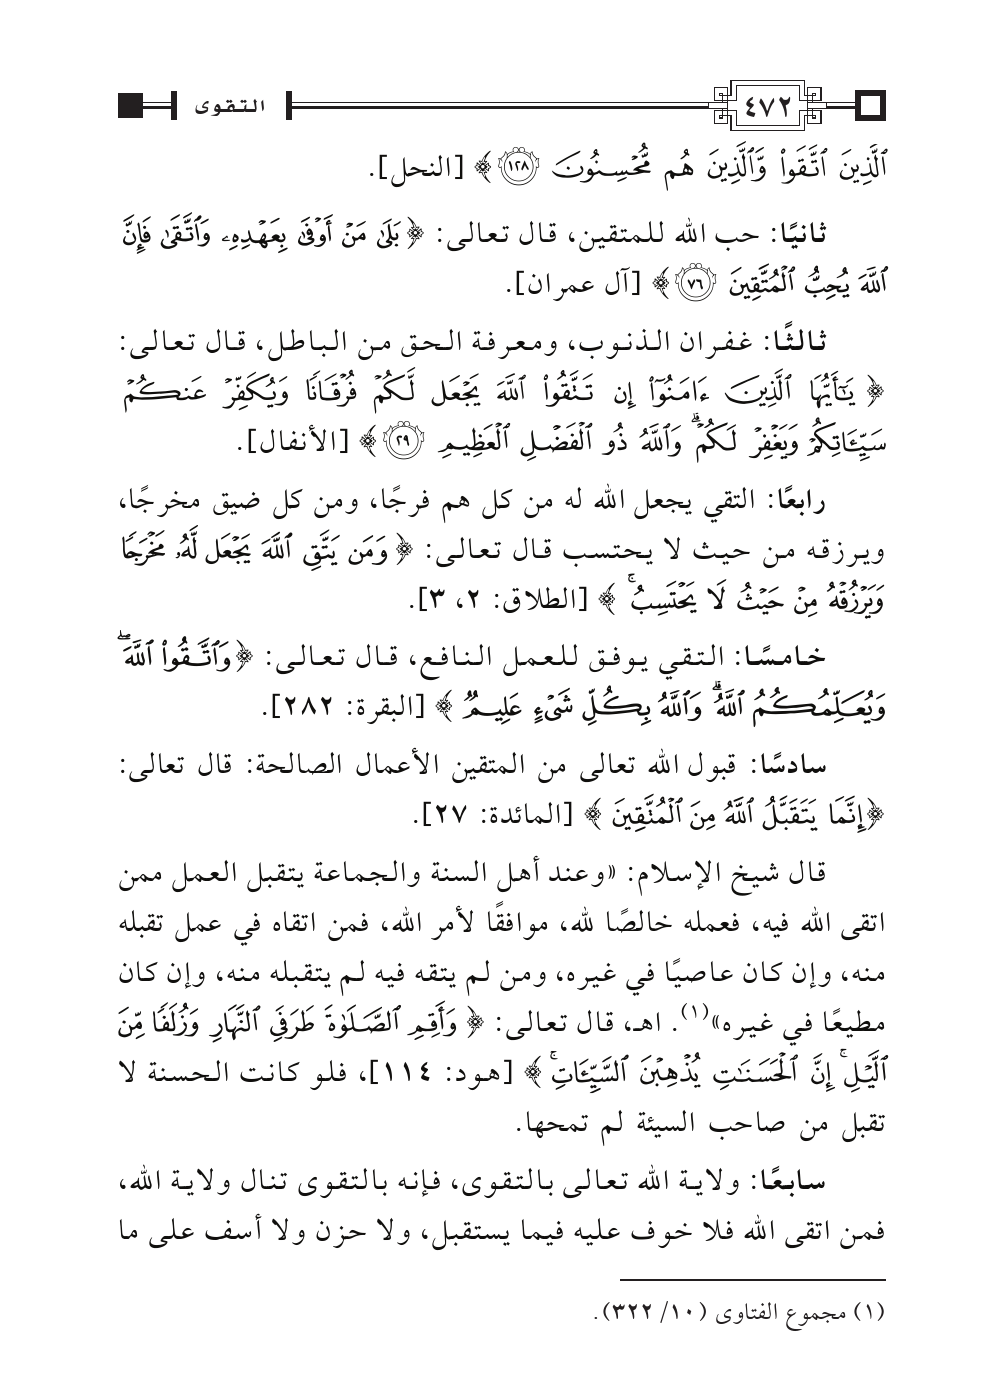 ٤٧٢ التقوى
ٱلَّذِينَ ٱتَّقَوا۟ وَّٱلَّذِينَ هُم مُّحْسِنُونَ ١٢٨ ﴾ [النحل].
ثانيًا: حب الله للمتقين، قال تعالى: ﴿ بَلَىٰ مَنْ أَوْفَىٰ بِعَهْدِهِۦ وَٱتَّقَىٰ فَإِنَّ
ٱللَّهَ يُحِبُّ ٱلْمُتَّقِينَ ٧٦ ﴾ [آل عمران].
ثالثًا: غفران الذنوب، ومعرفة الحق من الباطل، قال تعالى:
﴿ يَـٰٓأَيُّهَا ٱلَّذِينَ ءَامَنُوٓا۟ إِن تَتَّقُوا۟ ٱللَّهَ يَجْعَل لَّكُمْ فُرْقَانًا وَيُكَفِّرْ عَنكُمْ
سَيِّـَٔاتِكُمْ وَيَغْفِرْ لَكُمْ ۗ وَٱللَّهُ ذُو ٱلْفَضْلِ ٱلْعَظِيمِ ٢٩ ﴾ [الأنفال].
رابعًا: التقي يجعل الله له من كل هم فرجًا، ومن كل ضيق مخرجًا،
ويرزقه من حيث لا يحتسب قال تعالى: ﴿ وَمَن يَتَّقِ ٱللَّهَ يَجْعَل لَّهُۥ مَخْرَجًا
وَيَرْزُقْهُ مِنْ حَيْثُ لَا يَحْتَسِبُ ۚ ﴾ [الطلاق: ٢، ٣].
خامسًا: التقي يوفق للعمل النافع، قال تعالى: ﴿وَٱتَّقُوا۟ ٱللَّهَ ۖ
وَيُعَلِّمُكُمُ ٱللَّهُ ۗ وَٱللَّهُ بِكُلِّ شَىْءٍ عَلِيمٌ ﴾ [البقرة: ٢٨٢].
سادسًا: قبول الله تعالى من المتقين الأعمال الصالحة: قال تعالى:
﴿إِنَّمَا يَتَقَبَّلُ ٱللَّهُ مِنَ ٱلْمُتَّقِينَ ﴾ [المائدة: ٢٧].
قال شيخ الإسلام: «وعند أهل السنة والجماعة يتقبل العمل ممن
اتقى الله فيه، فعمله خالصًا لله، موافقًا لأمر الله، فمن اتقاه في عمل تقبله
منه، وإن كان عاصيًا في غيره، ومن لم يتقه فيه لم يتقبله منه، وإن كان
مطيعًا في غيره»(١). اهـ، قال تعالى: ﴿ وَأَقِمِ ٱلصَّلَوٰةَ طَرَفَىِ ٱلنَّهَارِ وَزُلَفًا مِّنَ
ٱلَّيْلِ ۚ إِنَّ ٱلْحَسَنَـٰتِ يُذْهِبْنَ ٱلسَّيِّـَٔاتِ ۚ ﴾ [هود: ١١٤]، فلو كانت الحسنة لا
تقبل من صاحب السيئة لم تمحها.
سابعًا: ولاية الله تعالى بالتقوى، فإنه بالتقوى تنال ولاية الله،
فمن اتقى الله فلا خوف عليه فيما يستقبل، ولا حزن ولا أسف على ما
(١) مجموع الفتاوى (١٠/ ٣٢٢).